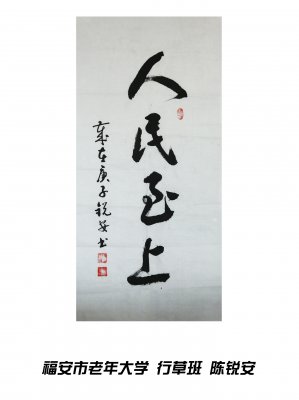 人民至上
岁在庚子锐安书
福安市老年大学 行草班 陈锐安